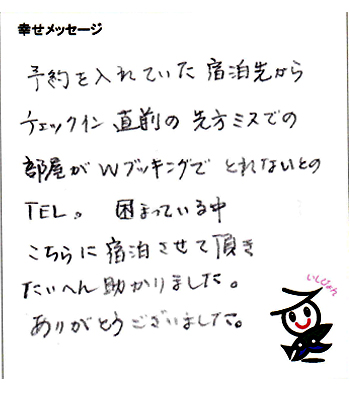 幸せメッセージ
予約を入れていた宿泊先から
チェックイン直前の先方ミスでの
部屋がWブッキングでとれないとの
TEL。困まっている中
こちらに宿泊させて頂き
たいへん助かりました。
ありがとうございました。